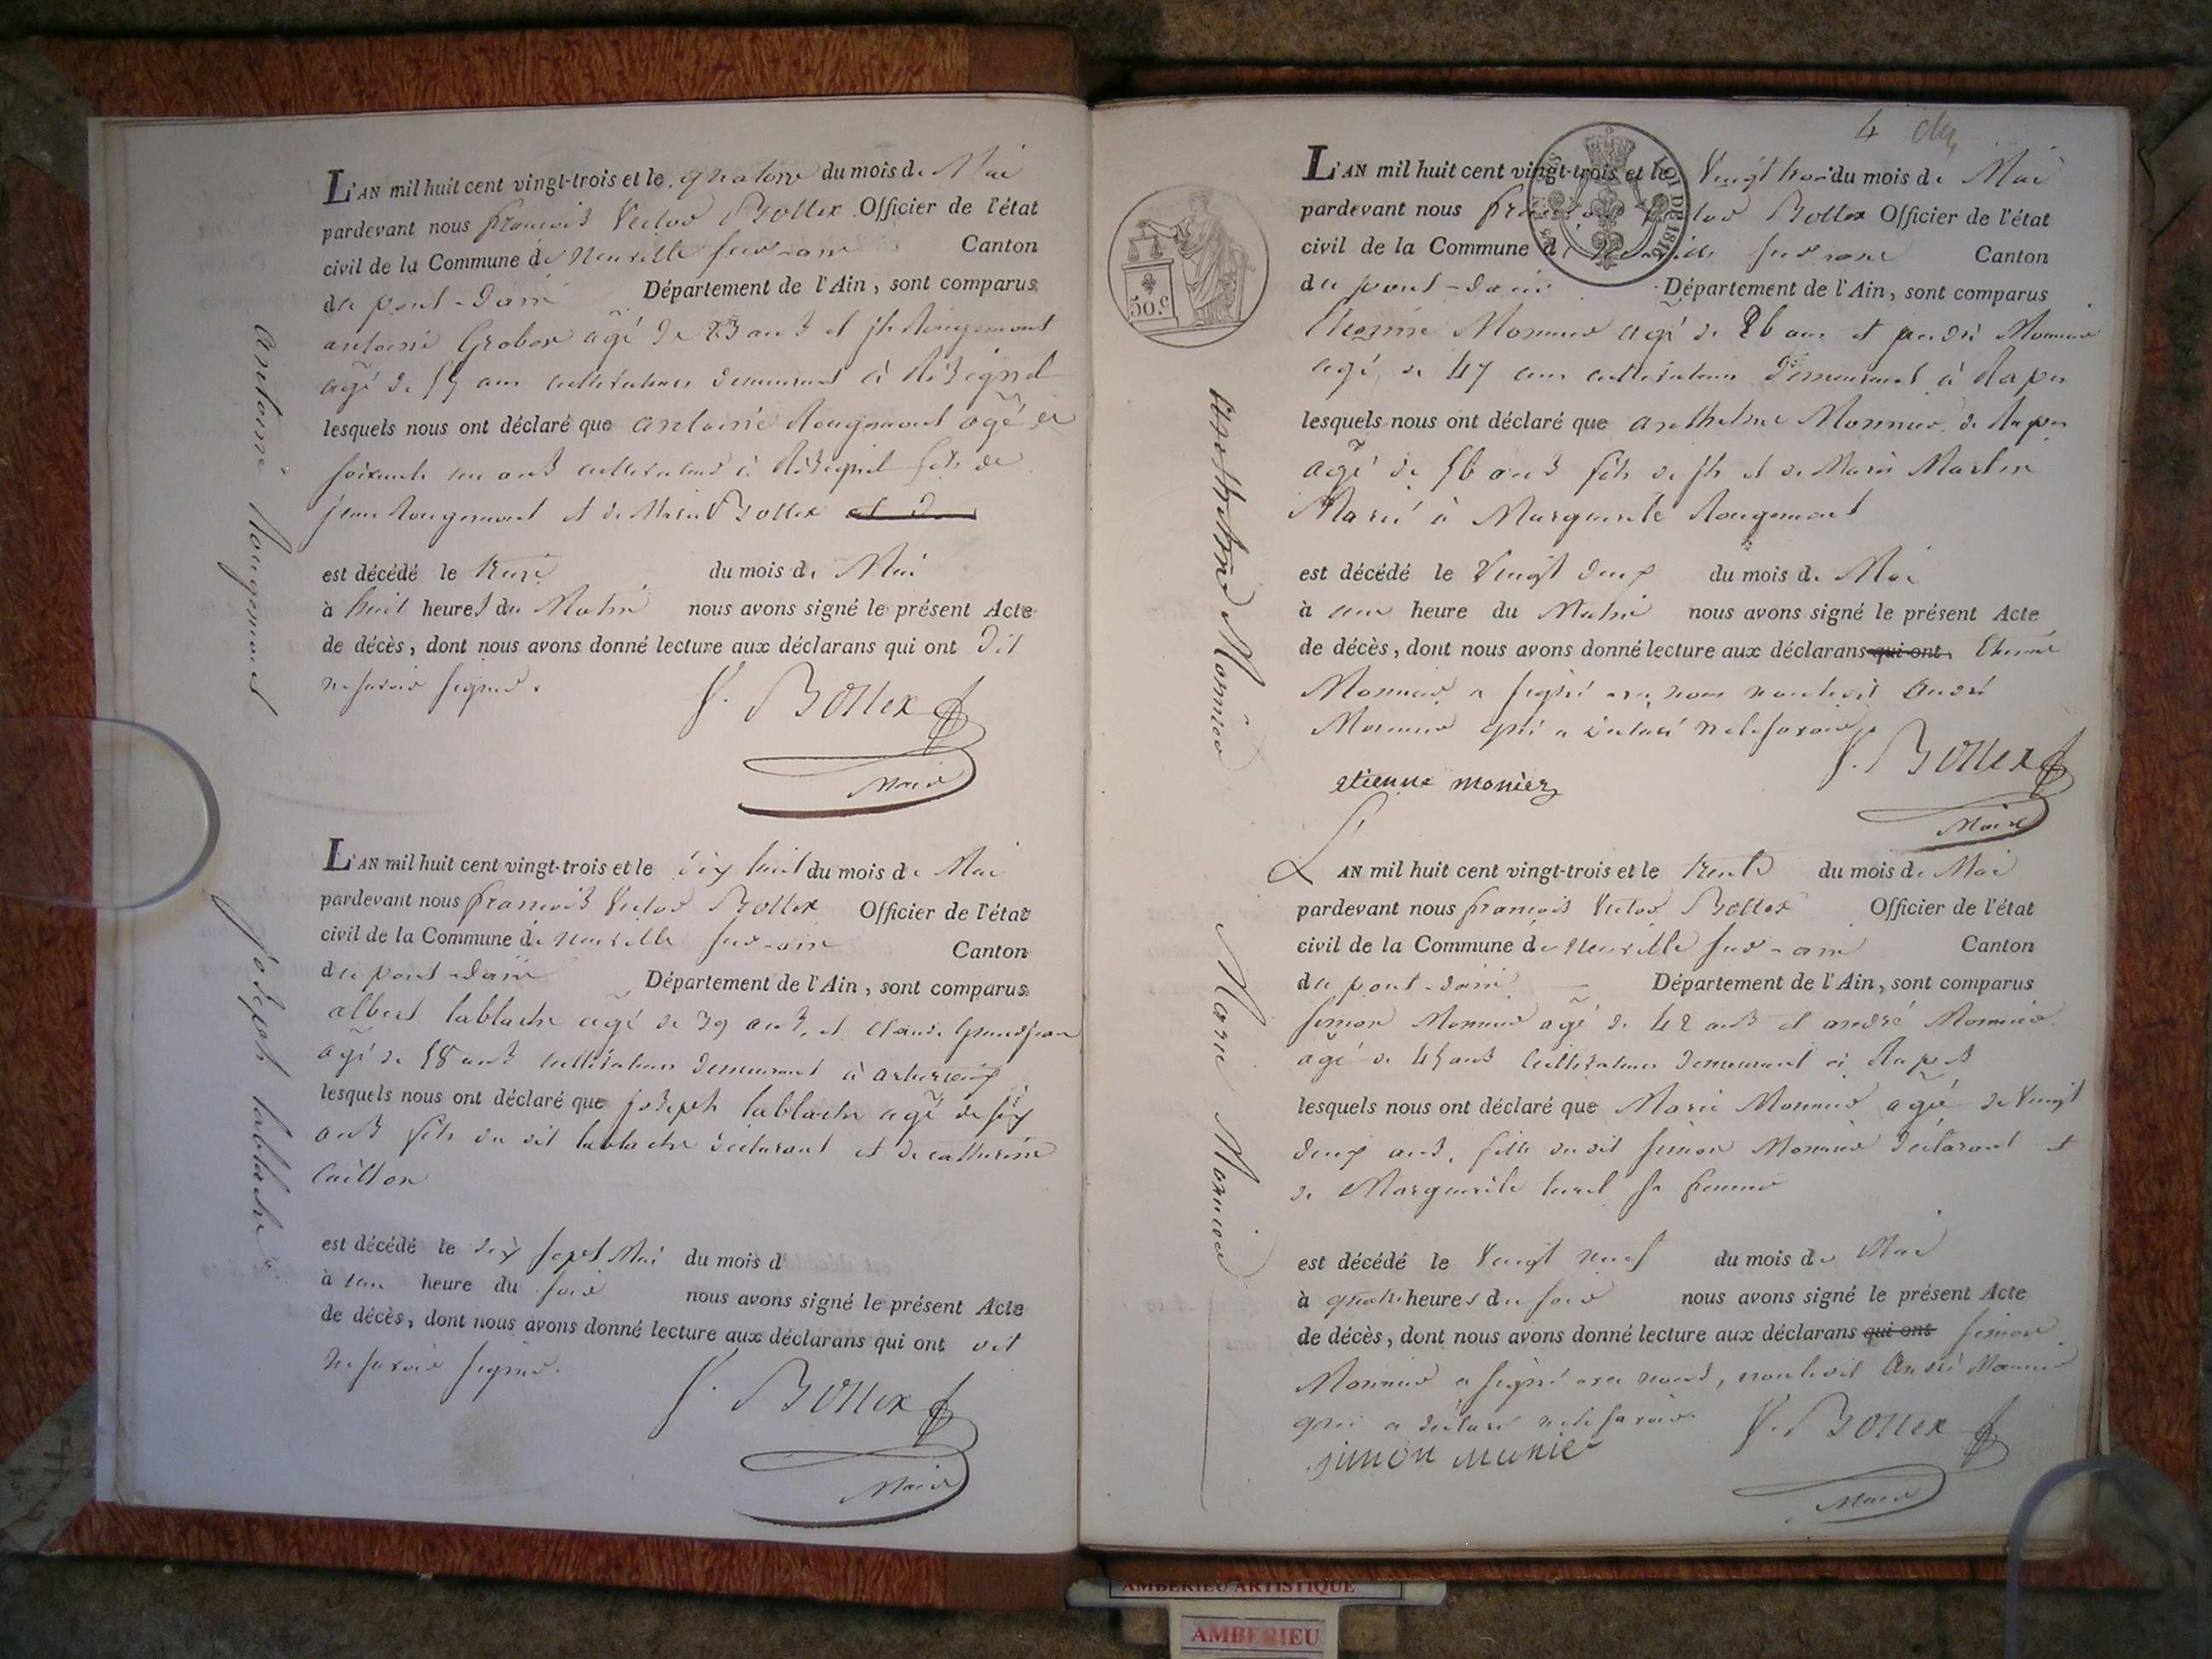 L'AN mil huit cent vingt-trois et le quatorze du mois de Mai
pardevant nous françois Victor Bottex Officier de l'état
civil de la Commune de Neuville sur-ain Canton
du pont-dain Département de l'Ain, sont comparus
antoine Grobon agé de 23 ans et jh Rougemont
agé de 55 ans cultivateurs demeurant à Résignel
lesquels nous ont déclaré que antoine Rougemont agé de
soixante un ans cultivateur à Résignel fils de
jean Rougemont et de Marie Bottex
est décédé le treize du mois de Mai
à huit heures du Matin nous avons signé le présent Acte
de décès, dont nous avons donné lecture aux déclarans qui ont dit
ne savoir signer.
V. Bottex
Maire
antoine Rougemont
L'AN mil huit cent vingt-trois et le dix huit du mois de Mai
pardevant nous françois Victor Bottex Officier de l'état
civil de la Commune de Neuville sur-ain Canton
du pont-dain Département de l'Ain, sont comparus
albert lablache agé de 39 ans, et claude Grandjean
agé de 58 ans cultivateurs demeurant à
lesquels nous ont déclaré que joseph lablache agé de six
ans fils du dit lablache déclarant et de catherine
Caillon
est décédé le dix sept Mai du mois d
à une heure du soir nous avons signé le présent Acte
de décès, dont nous avons donné lecture aux déclarans qui ont dit
ne savoir signer.
V. Bottex
Maire
joseph lablache
4
L'AN mil huit cent vingt-trois et le Vingt trois du mois de Mai
pardevant nous françois Victor Bottex Officier de l'état
civil de la Commune de Neuville sur-ain Canton
du pont-dain Département de l'Ain, sont comparus
LOI DE 1816
50.c
Etienne Monnier agé de 26 ans et andré Monnier
agé de 47 ans cultivateurs demeurant à Rapes
lesquels nous ont déclaré que anthelme Monnier de Rapes
agé de 56 ans fils de jh et de Marie Martin
Marié à Marguerite Rougemont
est décédé le Vingt deux du mois de Mai
à une heure du Matin nous avons signé le présent Acte
de décès, dont nous avons donné lecture aux déclarans qui ont Etienne
Monnier a signé avec nous non ledit André
Monnier qui a déclaré ne le savoir
etienne monier
V. Bottex
Maire
anthelme Monnier
L'AN mil huit cent vingt-trois et le trente du mois de Mai
pardevant nous françois Victor Bottex Officier de l'état
civil de la Commune de Neuville sur-ain Canton
du pont-dain Département de l'Ain, sont comparus
simon Monnier agé de 42 ans et andré Monnier
agé de 45 ans Cultivateurs demeurant à Rapes
lesquels nous ont déclaré que Marie Monnier agée de Vingt
deux ans, fille du dit simon Monnier déclarant et
de Marguerite sa femme
est décédé le Vingt neuf du mois de Mai
à quatre heures du soir nous avons signé le présent Acte
de décès, dont nous avons donné lecture aux déclarans qui ont simon
Monnier a signé avec nous, non ledit André Monnier
qui a déclaré ne le savoir.
simon munier
V. Bottex
Maire
Marie Monnier
AMBERIEU ARTISTIQUE
AMBERIEU